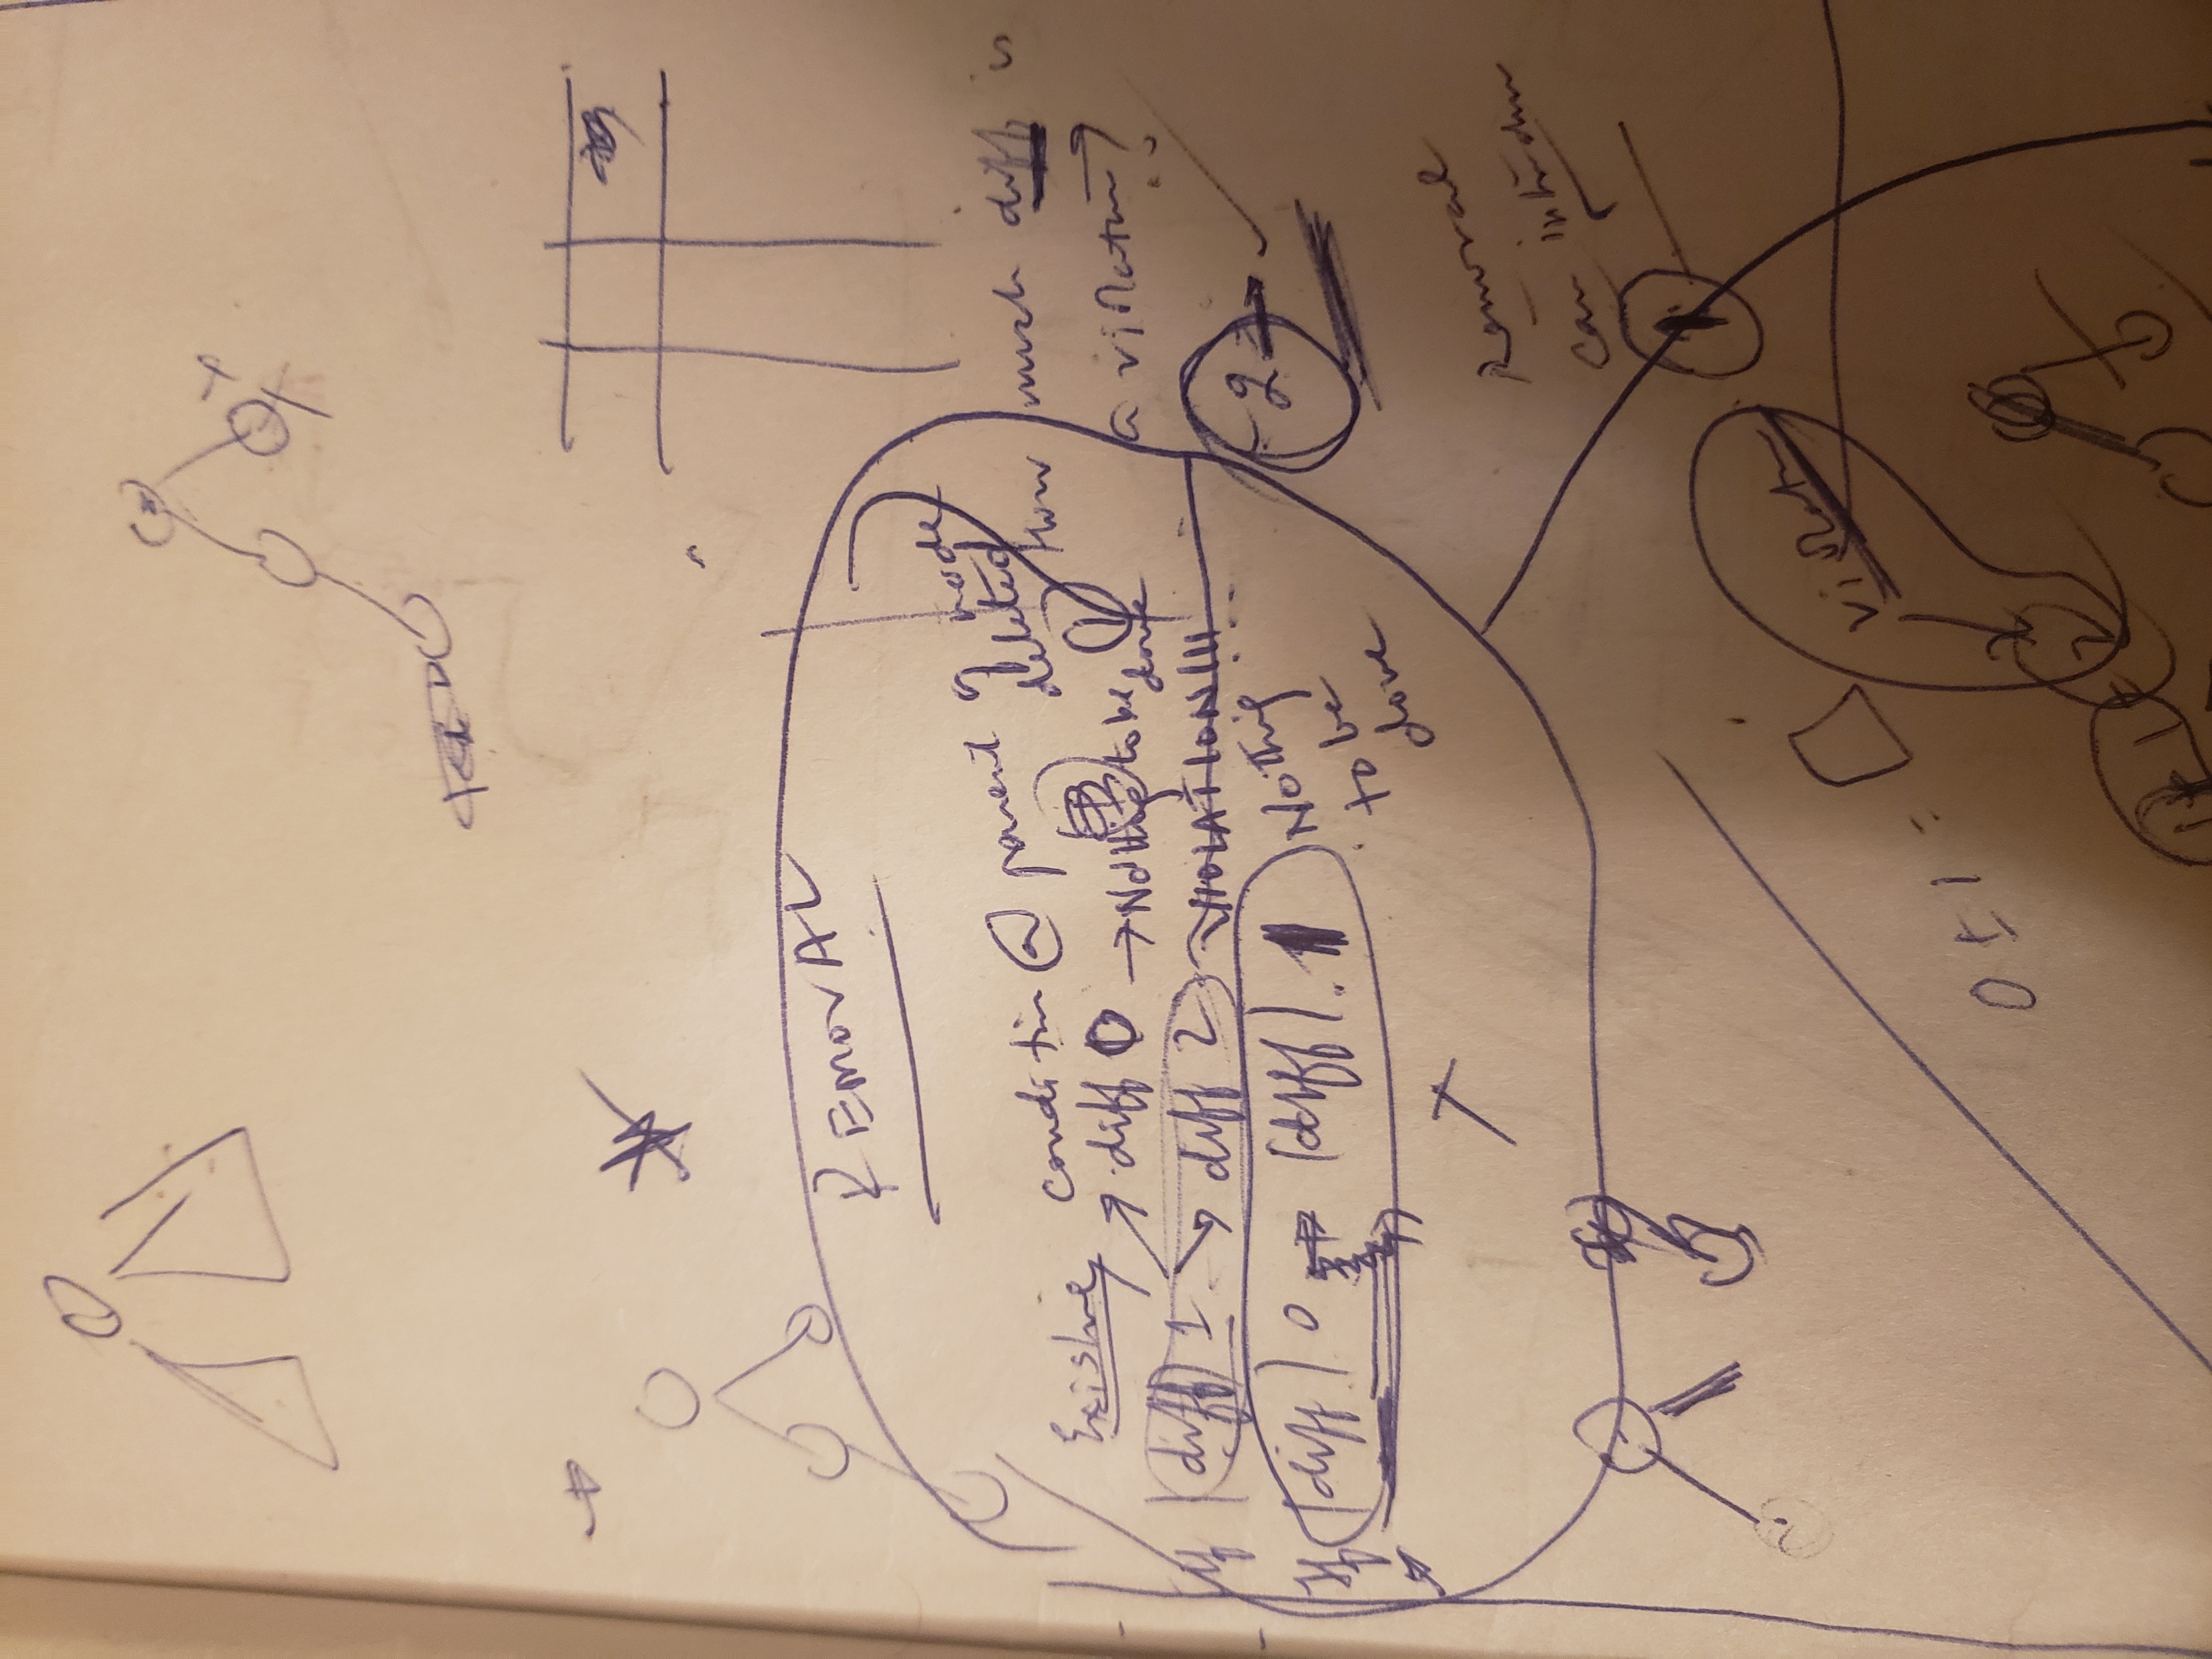 REMOVAL
Existing condition @ parent of node deleted
diff 0 → Nothing to be done
If |diff| 1
diff 2 VIOLATION!!!
If |diff| 0 → |diff| 1 Nothing to be done
How much diff is
a violation?
2 →
Removal
can introduce
1
violation
0 ± 1 =
2
1 + 1 = 2